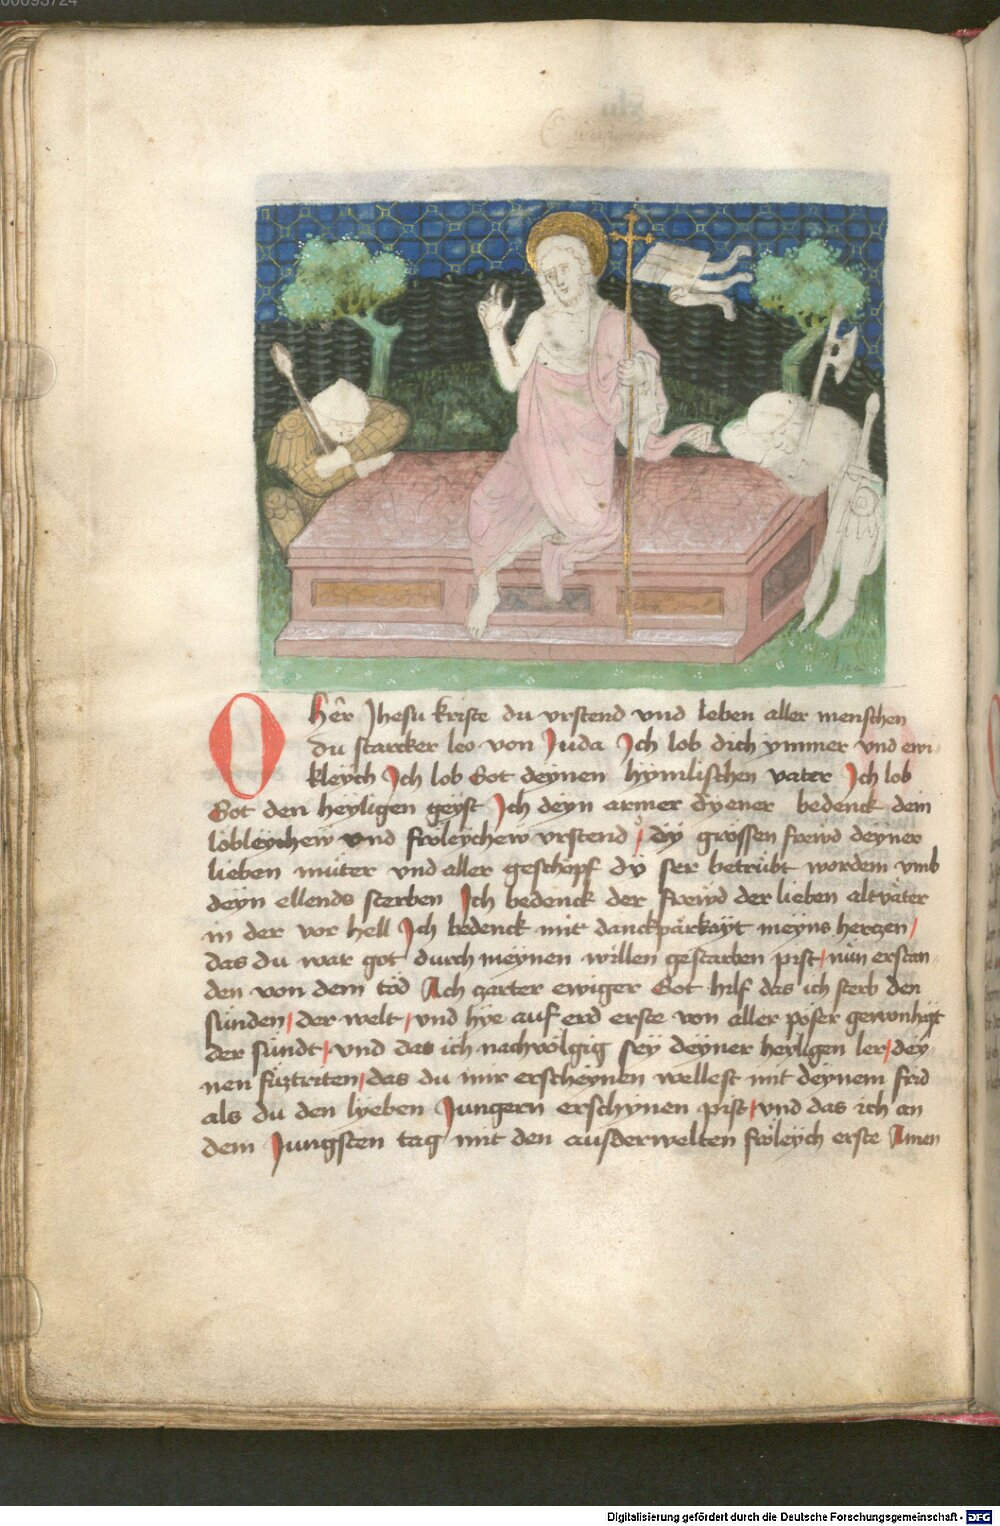 00093724
O hêr Jhesu kriste du vrstend vnd leben aller menschen
du starcker leo von Juda Ich lob dich ymmer vnd ewi-
kleych Ich lob Got deynen hymlischen vater Ich lob
Got den heyligen geyst Ich deyn armer dyener bedenck dein
lobleychew vnd fröleychew vrstend / dÿ grössen frewd deyner
lieben müter vnd aller geschöpf dÿ ser betrübt wordem vmb
deyn ellends sterben Ich bedenck der frewd der lieben altväter
in der vor hell Ich bedenck mit danckpärkäyt meyns hertzen /
das du war got durch meynen willen gestarben pist / nün erstan-
den von dem töd Ach zarter ewiger Got hilf das ich sterb den
sünden / der welt / vnd hye auf erd erste von aller pöser gewonhäyt
der sündt / vnd das ich nachvölgig sey deyner heyligen ler / dey-
nen füztriten / das du mir erscheynen wellest mit deynem frid
als du den lyeben Jungern erschynen pist / vnd das ich an
dem Jungsten tag mit den ausderwelten fröleych erste Amen
Digitalisierung gefördert durch die Deutsche Forschungsgemeinschaft - DFG